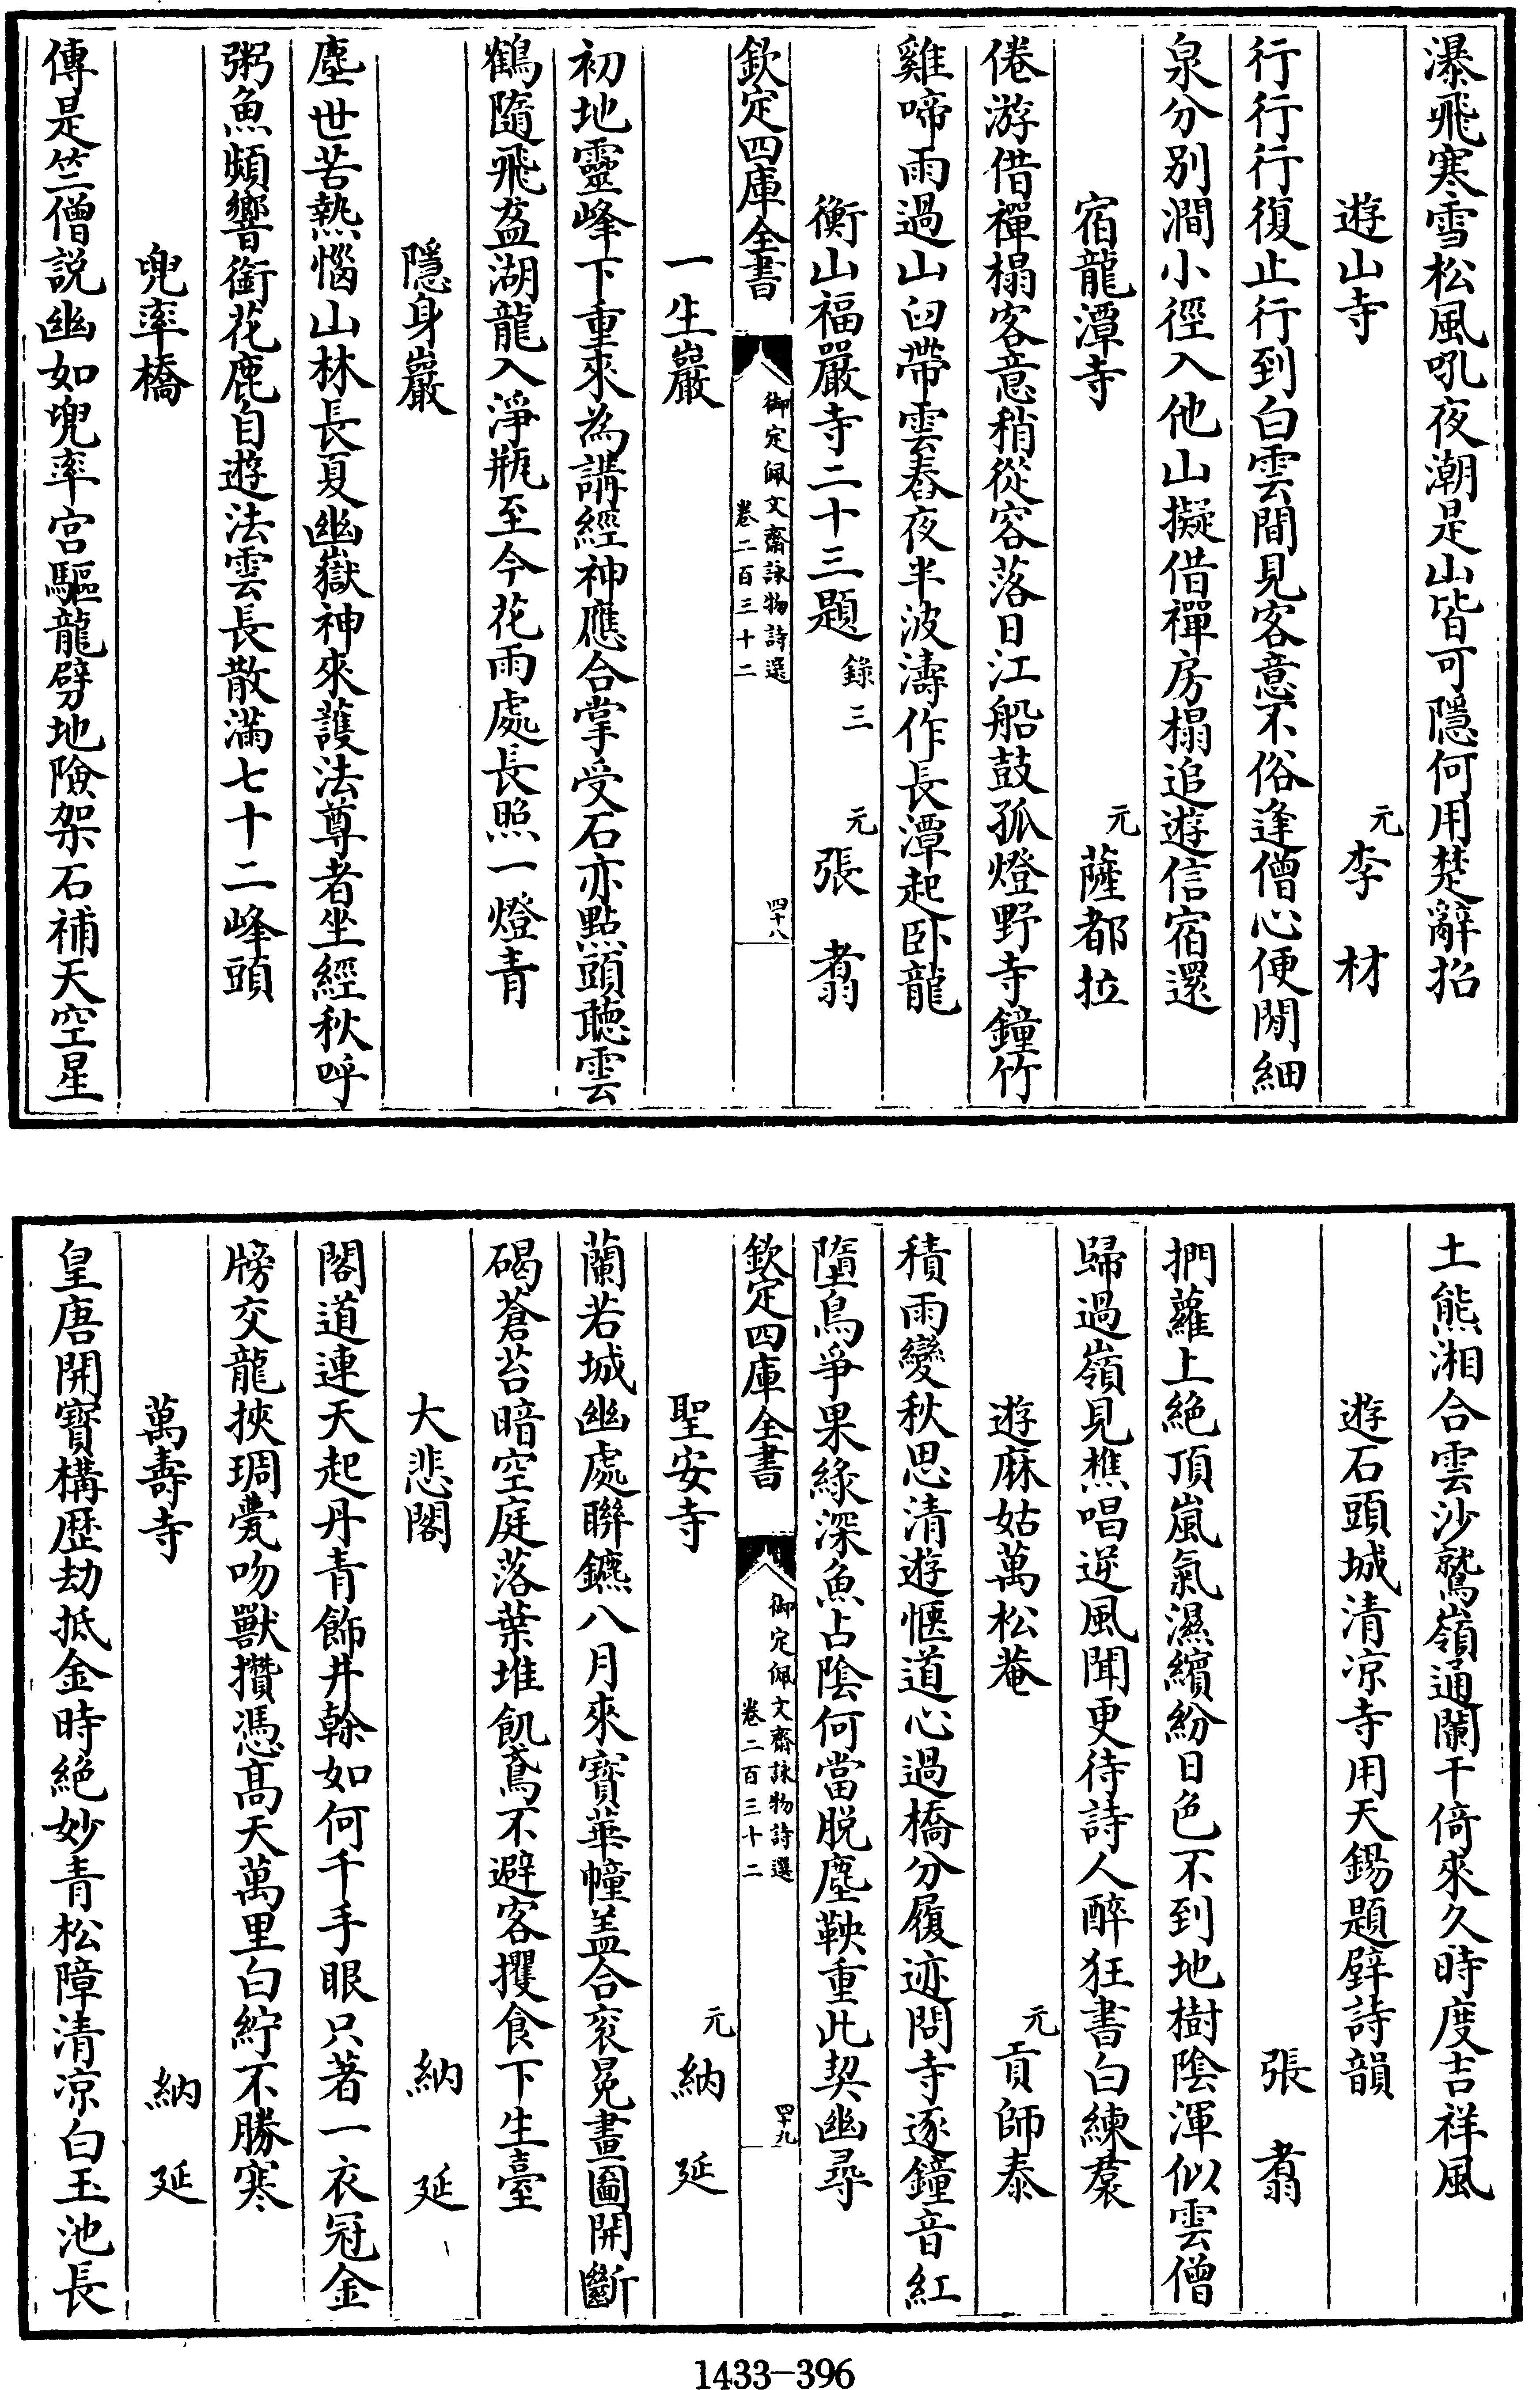 瀑飛寒雪松風吼夜潮是山皆可隱何用楚辭招
遊山寺 元 李材
行行行復止行到白雲間見客意不俗逢僧心便閒細
泉分別澗小徑入他山擬借禪房榻追遊信宿還
宿龍潭寺 元 薩都拉
倦游借禪榻客意稍從容落日江船鼓孤燈野寺鐘竹
雞啼雨過山臼帶雲舂夜半波濤作長潭起卧龍
衡山福嚴寺二十三題 錄三 元 張翥
欽定四庫全書 御定佩文齋詠物詩選 卷二百三十二 四十八
一生巖
初地靈峰下重來為講經神應合掌受石亦點頭聽雲
鶴隨飛盋湖龍入淨瓶至今花雨處長照一燈青
隱身巖
塵世苦熱惱山林長夏幽嶽神來護法尊者坐經秋呼
粥魚頻響銜花鹿自遊法雲長散滿七十二峰頭
兜率橋
傳是竺僧説幽如兜率宮驅龍劈地險架石補天空星
土熊湘合雲沙鷲嶺通闌干倚來久時度吉祥風
遊石頭城清凉寺用天錫題壁詩韻
張翥
捫蘿上絶頂嵐氣濕繽紛日色不到地樹陰渾似雲僧
歸過嶺見樵唱逆風聞更待詩人醉狂書白練裠
遊麻姑萬松菴 元 貢師泰
積雨變秋思清遊愜道心過橋分履迹問寺逐鐘音紅
墮鳥爭果緑深魚占陰何當脱塵鞅重此契幽尋
欽定四庫全書 御定佩文齋詠物詩選 卷二百三十二 四十九
聖安寺 元 納延
蘭若城幽處聯鑣八月來寳華幢盖合衮冕畫圖開斷
碣蒼苔暗空庭落葉堆飢鳶不避客攫食下生臺
大悲閣 納延
閣道連天起丹青飾井榦如何千手眼只著一衣冠金
牓交龍挾琱甍吻獸攢憑髙天萬里白紵不勝寒
萬壽寺 納延
皇唐開寳構歴劫抵金時絶妙青松障清凉白玉池長
1433-396